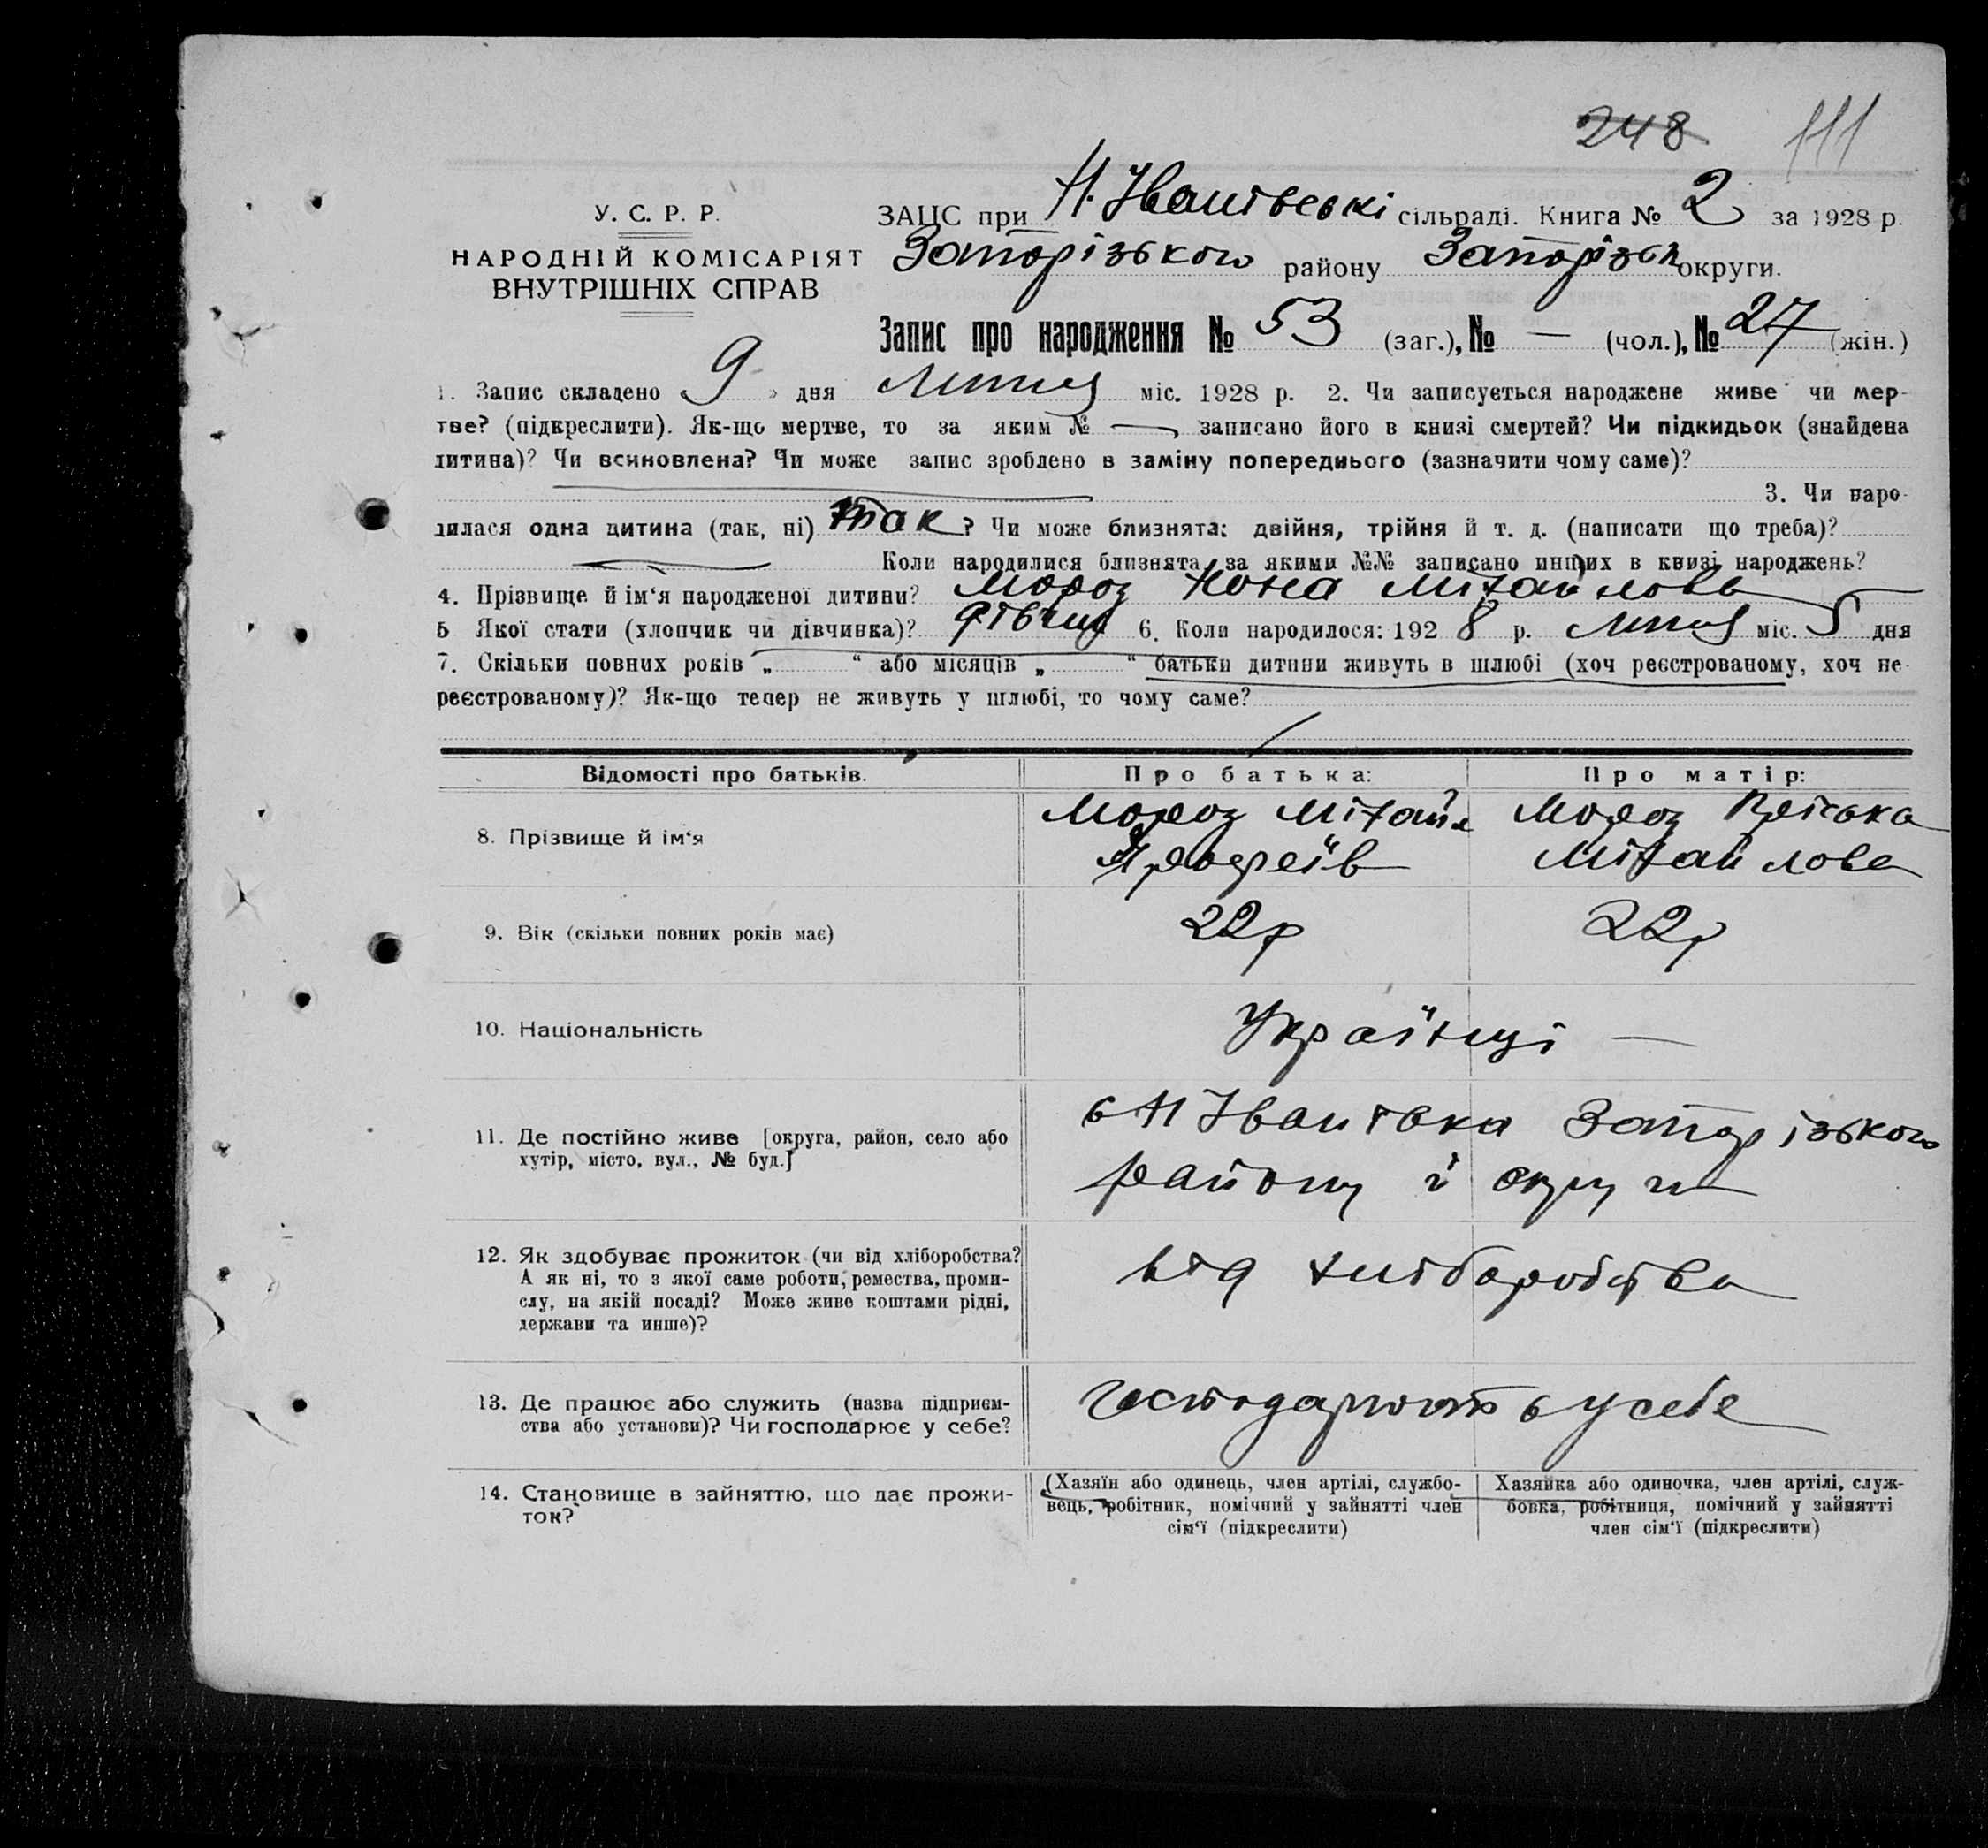 248 111
У. С. Р. Р.
НАРОДНІЙ КОМІСАРІЯТ
ВНУТРІШНІХ СПРАВ
ЗАЦС при Н. Іванівські сільраді. Книга № 2 за 1928 р.
Запорізького району Запорізьк округи.
Запис про народження № 53 (заг.), № — (чол.), № 27 (жін.)
1. Запис складено 9 дня Липня міс. 1928 р. 2. Чи записується народжене живе чи мер-
тве? (підкреслити). Як-що мертве, то за яким № — записано його в книзі смертей? Чи підкидьок (знайдена
дитина)? Чи всиновлена? Чи може запис зроблено в заміну попереднього (зазначити чому саме)?
3. Чи наро-
дилася одна дитина (так, ні) так? Чи може близнята: двійня, трійня й т. д. (написати що треба)?
Коли народилися близнята, за якими №№ записано инших в книзі народжень?
4. Прізвище й ім‘я народженої дитини? Мороз Нона Міхайлова
5 Якої стати (хлопчик чи дівчинка)? дівчина 6. Коли народилося: 1928 р. Липня міс. 5 дня
7. Скільки повних років „ “ або місяців „ “ батьки дитини живуть в шлюбі (хоч реєстрованому, хоч не-
реєстрованому)? Як-що тепер не живуть у шлюбі, то чому саме?
Відомості про батьків. Про батька: Про матір:
8. Прізвище й ім‘я
Мороз Міхайл Мороз Пріська
Міхайлова
9. Вік (скільки повних років має) 22р 22р
10. Національність Українці —
11. Де постійно живе [округа, район, село або
хутір, місто, вул., № буд.]
с Н Іванівка Запорізького
району і округи
12. Як здобуває прожиток (чи від хліборобства?
А як ні, то з якої саме роботи, ремества, проми-
слу, на якій посаді? Може живе коштами рідні,
держави та инше)?
від хліборобства
13. Де працює або служить (назва підприєм-
ства або установи)? Чи господарює у себе?
Господарюють у себе
14. Становище в зайняттю, що дає прожи-
ток?
(Хазяїн або одинець, член артілі, службо-
вець, робітник, помічний у зайнятті член
сім‘ї (підкреслити)
Хазяйка або одиночка, член артілі, служ-
бовка, робітниця, помічний у зайнятті
член сім‘ї (підкреслити)